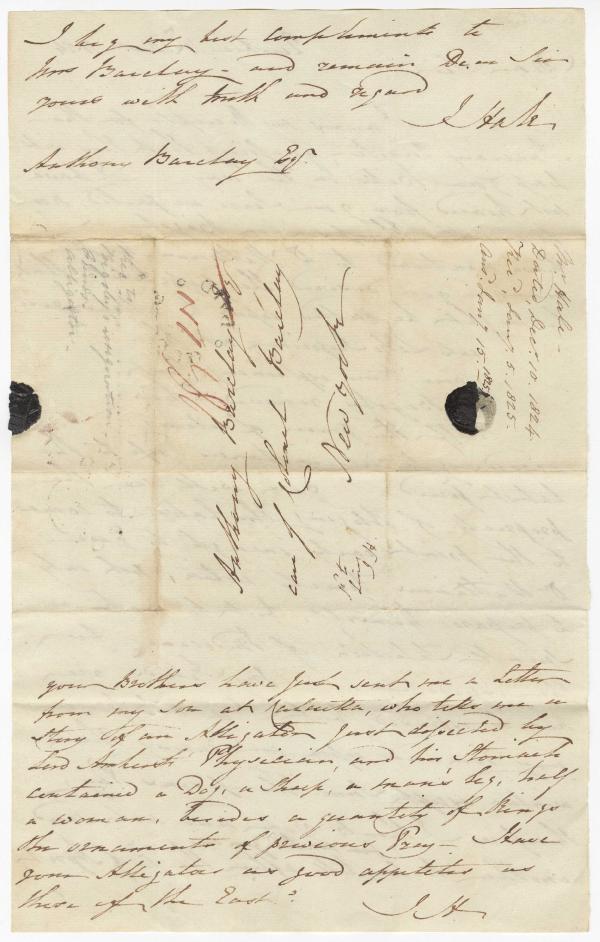 I beg my best compliments to
Mrs Barclay - and remain Dear Sir
yours with truth and regard
J Hale
Anthony Barclay Esqr.
Mr. Hale -
Dated, Dect. 10. 1824.
Rec'd Jany. 5. 1825.
And Jany. 15. 1825
Anthony Barclay
care of Robert Barclay
New York
your Brothers have just sent me a Letter
from my son at Calcutta, who tells me a
story of an Alligator just disected by
Lord Amherst's Physician, and his Stomach
contained a Dog, a Sheep, a man's leg, half
a woman, besides a quantity of Rings
the ornaments of previous Prey - Have
your Alligators as good appetites as
those of the East?
J H